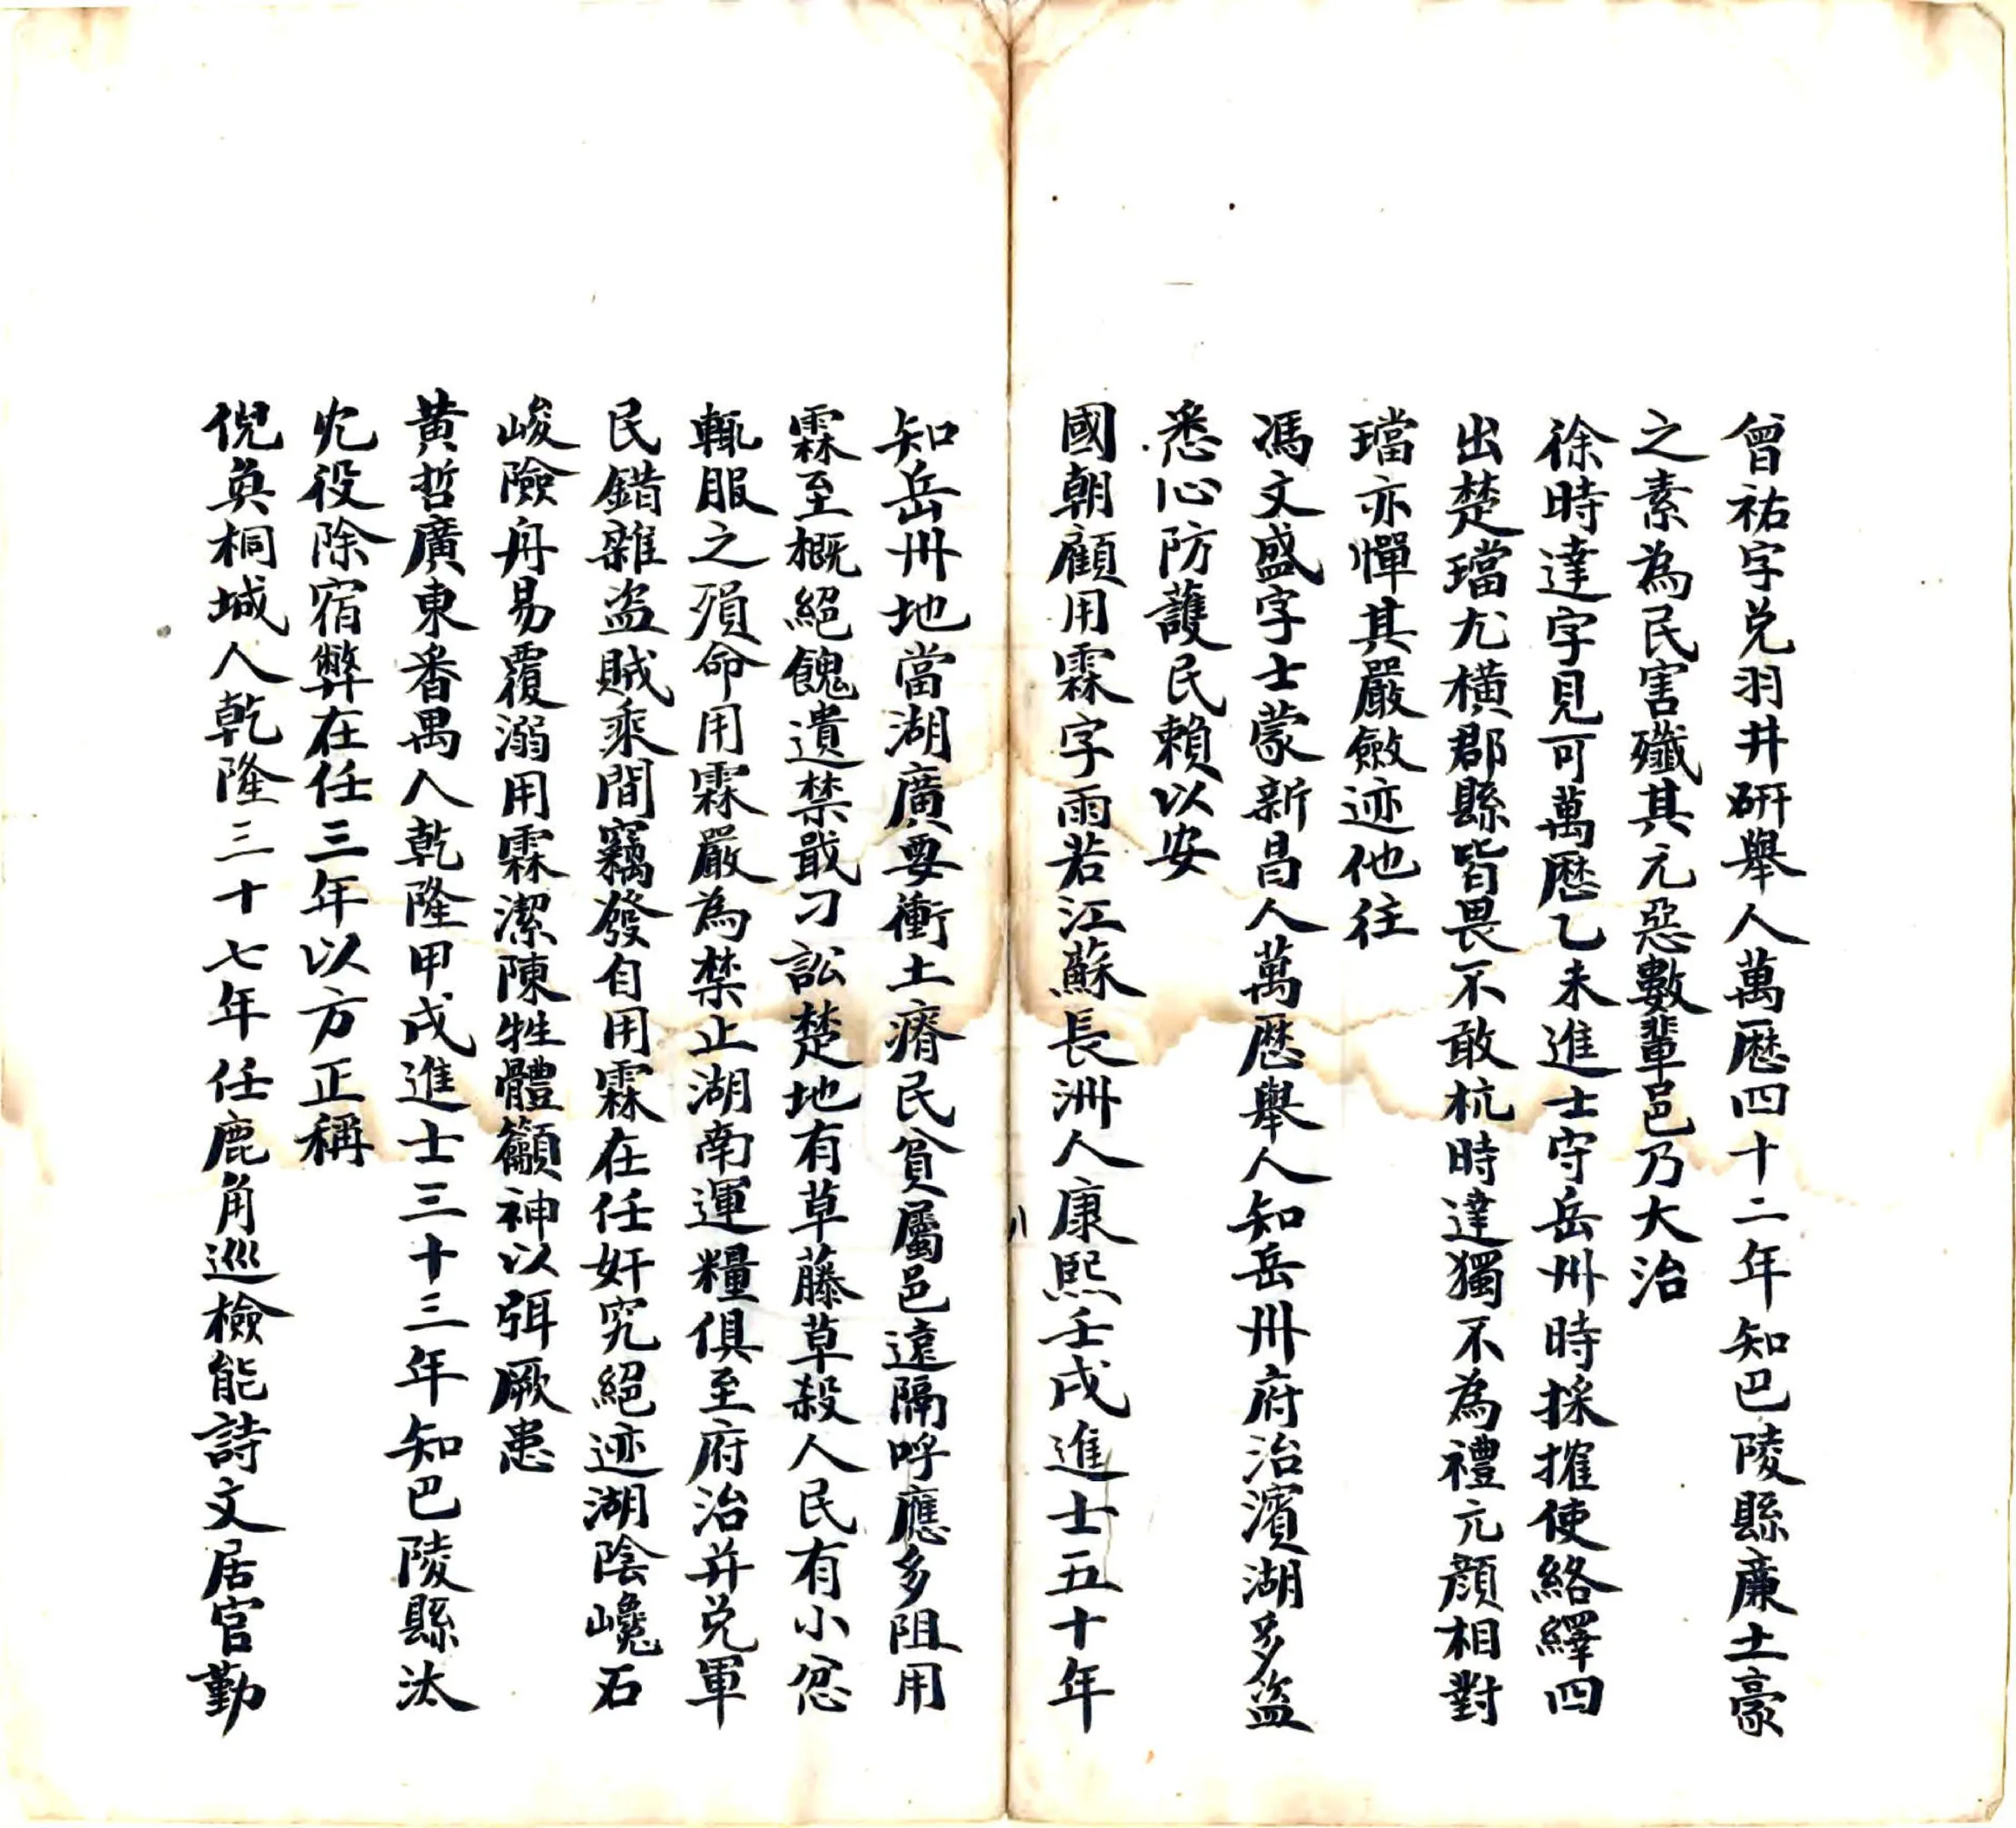 曾祐字兑羽井研舉人萬厯四十二年知巴陵縣廉土豪
之素為民害殲其元惡數輩邑乃大治
徐時達字見可萬厯乙未進士守岳州時採搉使絡繹四
出楚璫尤橫郡縣皆畏不敢杭時達獨不為禮亢顏相對
璫亦憚其嚴斂迹他往
馮文盛字士蒙新昌人萬厯舉人知岳州府治濱湖多盜
悉心防護民賴以安
國朝顧用霖字雨若江蘇長洲人康熙壬戌進士五十年
知岳州地當湖廣要衝土瘠民貧屬邑遠隔呼應多阻用
霖至概絕餽遺禁戢刁訟楚地有草藤草殺人民有小忿
輒服之殞命用霖嚴為禁止湖南運糧俱至府治并兑軍
民錯雜盜賊乘間竊發自用霖在任奸宄絕迹湖陰巉石
峻險舟易覆溺用霖潔陳牲醴籲神以弭厥患
黃哲廣東番禺人乾隆甲戌進士三十三年知巴陵縣汰
冗役除宿弊在任三年以方正稱
倪奐桐城人乾隆三十七年任鹿角巡檢能詩文居官勤